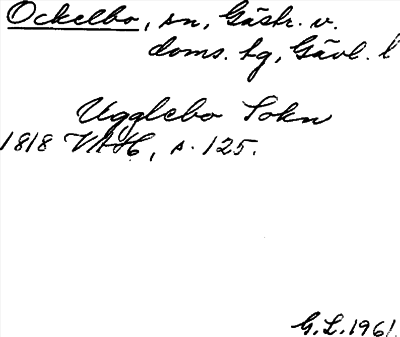 Ockelbo, sn, Gästr. v.
doms. hg, Gävl. l
Ugglebo Sokn
1818 VAH, s. 125.
G.L. 1961.